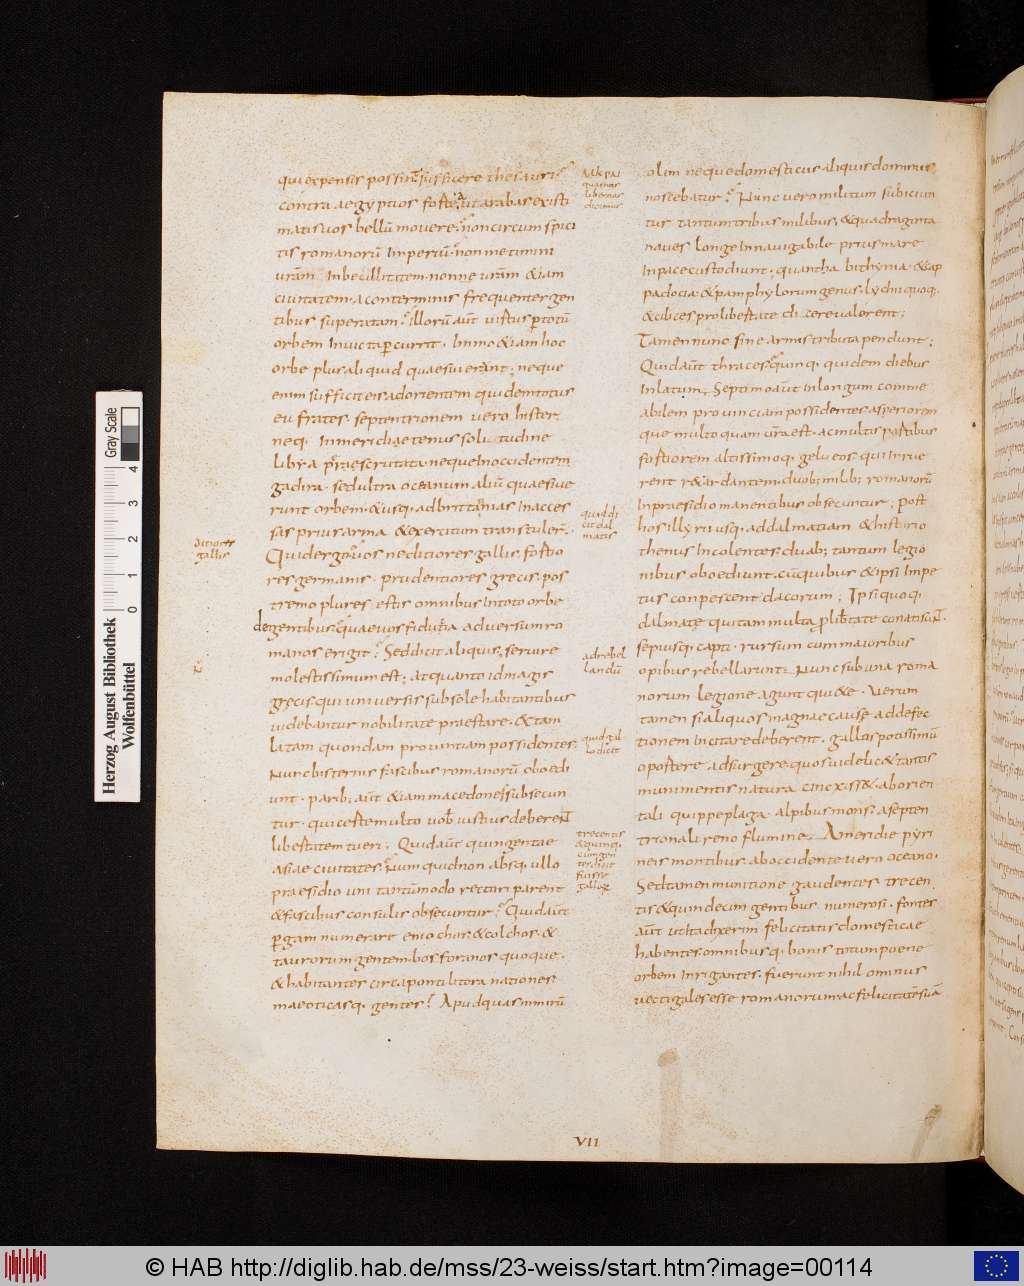 qui expensis possin͞t sufficere thesauri?
contra aegyptios fosté ut arabas existi
matis uos bellū mouere? non circumspici
tis romanorū Imperiū? non metimini
urām Inbecillitatem. nonne urām &iam
ciuitatem. a conterminis frequenter gen
tibus superatam? illorū aūt uirtus p totū
orbem Inuicta percurrit. Immo &iam hoc
orbe plus aliquid quaesuierant; neque
enim sufficit eis ad orientem quidem totus
eufrates. septentrionem uero hister
neq. Inmeridiae tenus soli tudine
libya praescrutata. neque Inoccidentem
gadira. sed ultra oceanum aliū quaesiue
runt orbem. &usq. ad brittanias Inacces
sas prius arma &exercitum transtuler;
Quid ergo. uos neditiores gallis. fortio
res germanis. prudentiores grecis. pos
tremo plures estis omnibus Intoto orbe
degentibus. quae uos fiducia aduersum ro
manos erigit? Sed dicit aliquis, seruire
molestissimum est; at quanto id magis
grecis. qui uniuersis sub sole habitantibus
uidebantur nobilitate praestare. &tam
latam quondam prouintiam possidentes.
Nunc bis ternis fascibus romanorū oboedi
unt. parib; aūt &iam macedones subsecun
tur. qui certe multo uob iustius deberen͞t
libertatem tueri. Quid aūt quingentae
asiae ciuitates? Num quid non absq. ullo
praesidio uni tantūmodo rectori parent
&fascibus consulis obsecuntur? Quid aūt
pergam numerare eniochos. &colchos. &
taurorum gentem. bosforanos quoque.
&habitantes circa ponti litora nationes
maeoticasq. gentes? Apud quas nimirū
quaenas
libernas
dicimus
ditiores
gallis
quid di
cit dal
matis
ad rebel
landū
quid gal
lo dicit
trecentis
&quinq;
cum gen
ter dicit
fuisse
gallor
olim neque domesticus aliquis dominus
noscebatur? Nunc uero militum subiciun
tur tantum tribus milibus, &quadraginta
naues longe Innauigabile prius mare
Inpace custodiunt. quanta bithynia. &cap
padocia &pamphylorum genus. lychi quoq;
&cilices pro libertate dicere ualerent;
Tamen nunc sine armis tributa pendunt;
Quid aūt thraces? quinq. quidem diebus
Inlatum, Septimo aūt Inlongum comme
abilem prouinciam possidentes. asperiorem
que multo quam ura est. ac multis partibus
fortiorem altissimoq. gelu eos qui Inrue
rent r&ardantem. duob; milib; romanorū
Inpraesidio manentibus obsecuntur; Post
hos illyrii usq. ad dalmatiam &histrio
thenus Incolentes. duab; tantum legio
nibus oboediunt. cum quibus &ipsi Impe
tus conpescent dacorum; Ipsi quoq.
dalmatę qui tam multa p libtate conatisun͞t.
sepiusq. capti. rursum cum maioribus
opibus rebellarunt. Nunc sub una roma
norum legione agunt qui&e. Verum
tamen si aliquos magnae causę ad defec
tionem Incitare deberent. gallos potissimū
oportere adsurgere. quos uidelic& tantis
munimentis natura cinxiss&. ab orien
tali quippe plaga. alpibus mons; a septen
trionali reno flumine. Ameridie pyri
neis montibus. ab occidente uero oceano.
Sed tamen munitione gaudentes trecen
tis &quindecim gentibus numerosi. fontes
aūt ut ita dixerim felicitatis domesticae
habentes. omnibusq. bonis totum poene
orbem Inrigantes. fuerunt nihil ominus
uectigales esse romanorum ac felicitatē suā
VII
Herzog August Bibliothek
Wolfenbüttel
Gray Scale
0 1 2 3 4
© HAB http://diglib.hab.de/mss/23-weiss/start.htm?image=00114